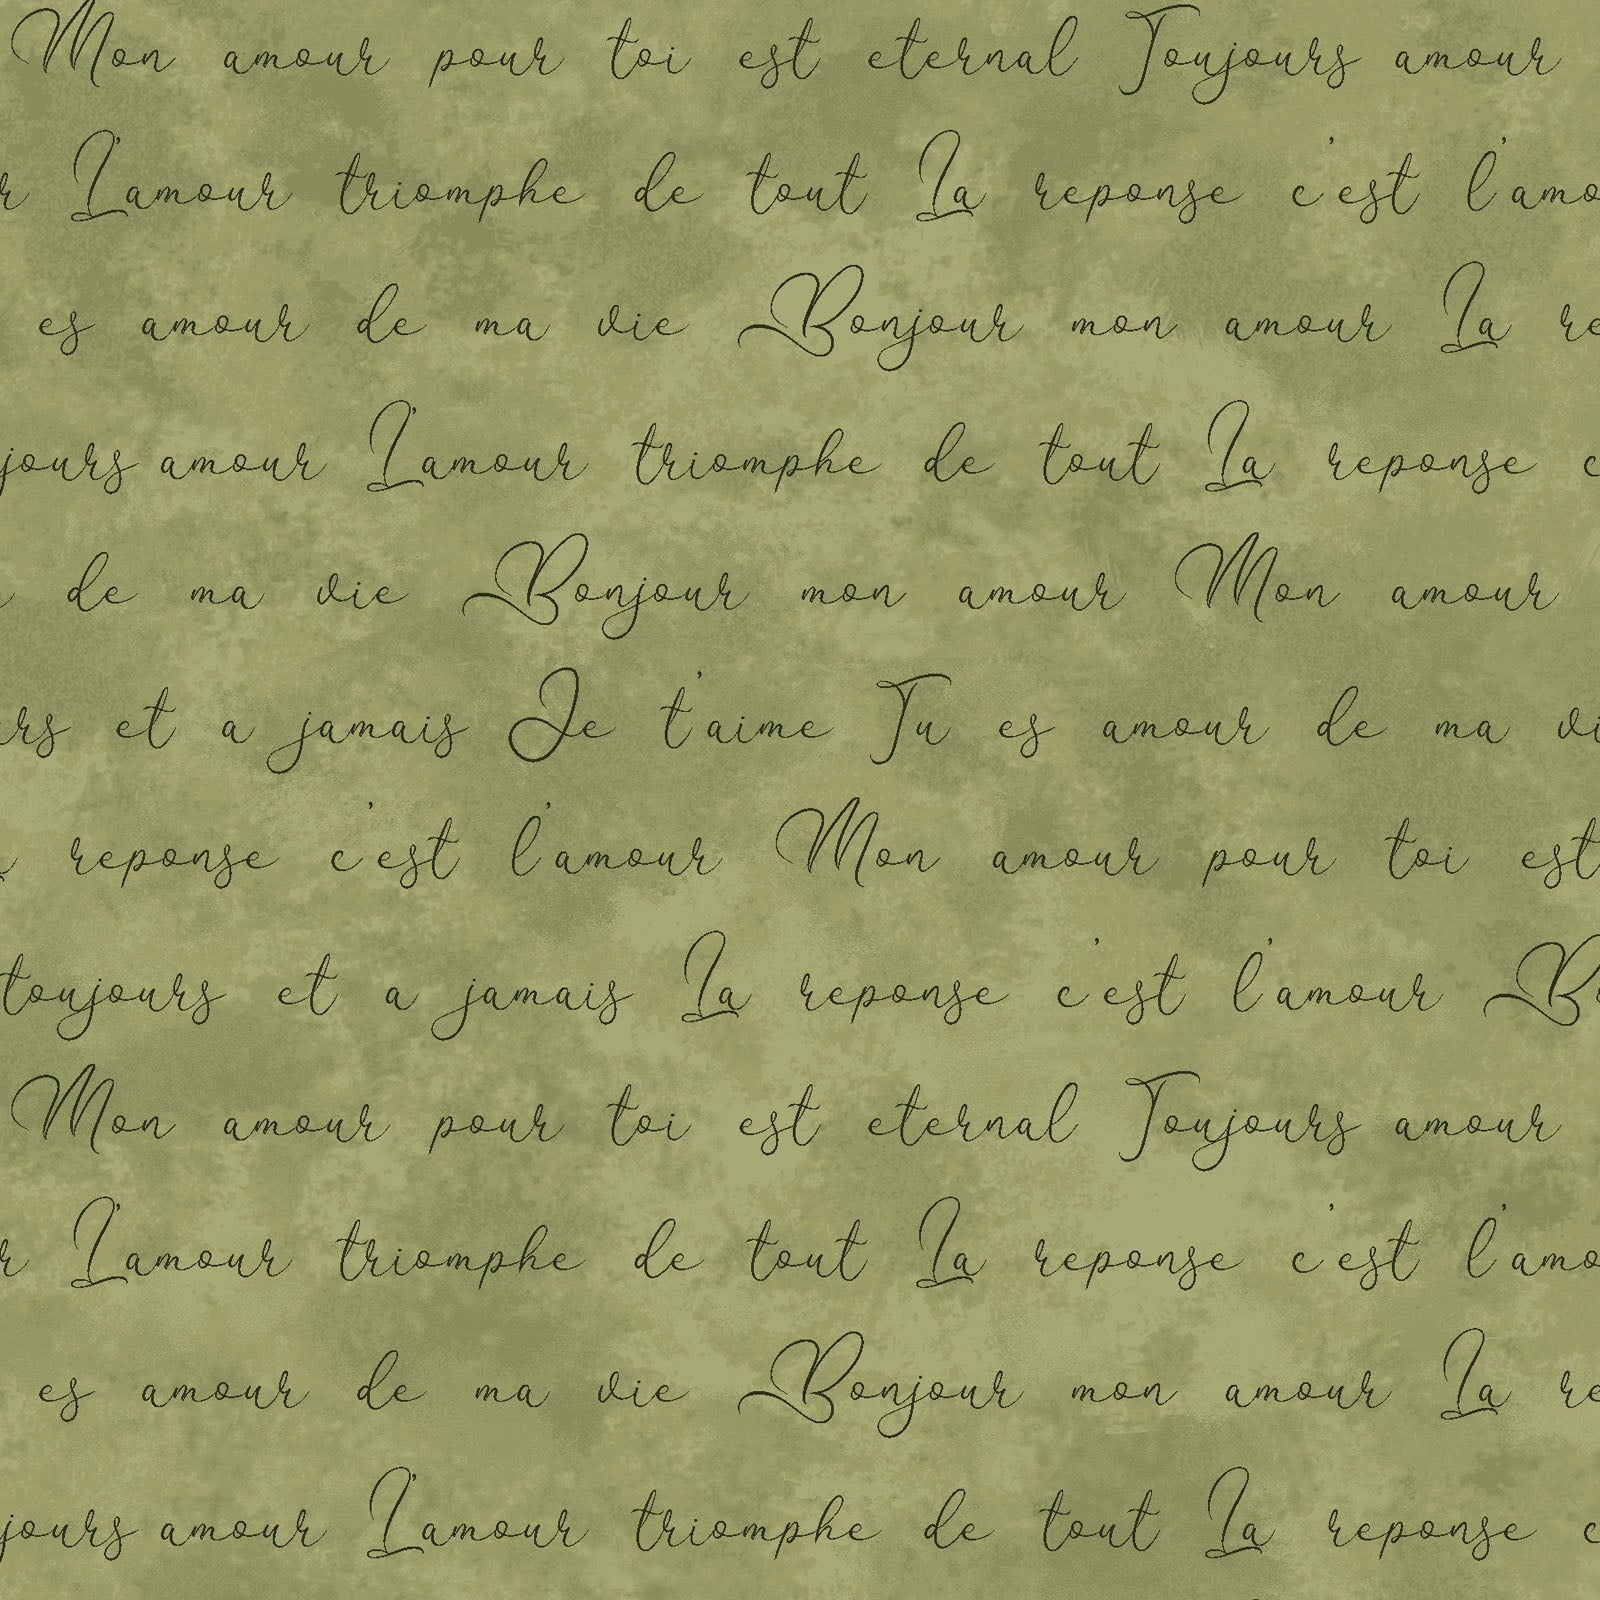 Mon amour pour toi est eternal Toujours amour
r L'amour triomphe de tout La reponse c'est l'amo
es amour de ma vie Bonjour mon amour La re
jours amour L'amour triomphe de tout La reponse c
de ma vie Bonjour mon amour Mon amour
rs et a jamais Je t'aime Tu es amour de ma vi
reponse c'est l'amour Mon amour pour toi est
toujours et a jamais La reponse c'est l'amour Bo
Mon amour pour toi est eternal Toujours amour
r L'amour triomphe de tout La reponse c'est l'amo
es amour de ma vie Bonjour mon amour La re
jours amour L'amour triomphe de tout La reponse c